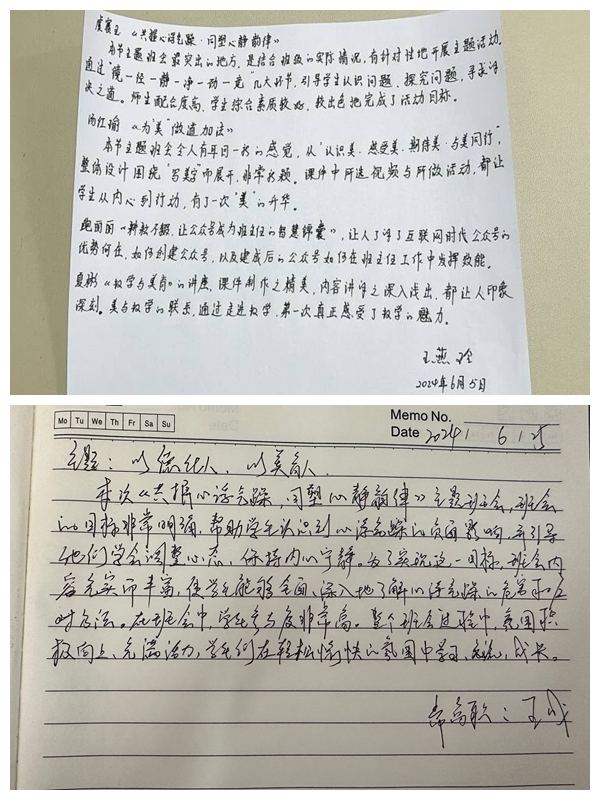 虞赛主 《共抿心浮气躁·同塑心静韵律》
本节主题班会最突出的地方，是结合班级的实际情况，有针对性地开展主题活动。
通过"镜一径一静一净一劲一竞"几大环节，引导学生认识问题、探究问题，寻求解
决之道。师生配合度高，学生综合素质较好，较出色地完成了活动目标。
红瑜 《为"美"做道加法》
本节主题班会令人有耳目一新的感觉，从"认识美·感受美·期待美·与美同行"，
整体设计围绕"美"而展开，非常新颖。课件中所选视频与所做活动，都让
学生从内心到行动，有了一次"美"的升华。
鲍丽丽《耕耘不辍，让公众号成为班主任的智慧锦囊》，让人了解了互联网时代公众号的
优势何在，如何创建公众号，以及建成后的公众号如何在班主任工作中发挥效能。
夏彬《数学与美育》的讲座，课件制作之精美，内容讲解之深入浅出，都让人印象
深刻。美与数学的联系，通过走进数学，第一次真正感受了数学的魅力。
王燕玲
2024年6月5日
Mo Tu We Th Fr Sa Su
Memo No.
Date 2024 / 6 / 5
主题：以德化人，以美育人
本次《共抿心浮气躁，同塑心静韵律》主题班会，班会
的目标非常明确，帮助学生认识到心浮气躁的负面影响，并引导
他们学会调整心态，保持内心宁静。为了实现这一目标，班会内
容充实而丰富，使学生能够全面、深入地了解心浮气躁的危害和应
对方法。在班会中，学生参与度非常高。整个班会过程中，氛围积
极向上、充满活力，学生们在轻松愉快的氛围中学习、成长。
高职：王